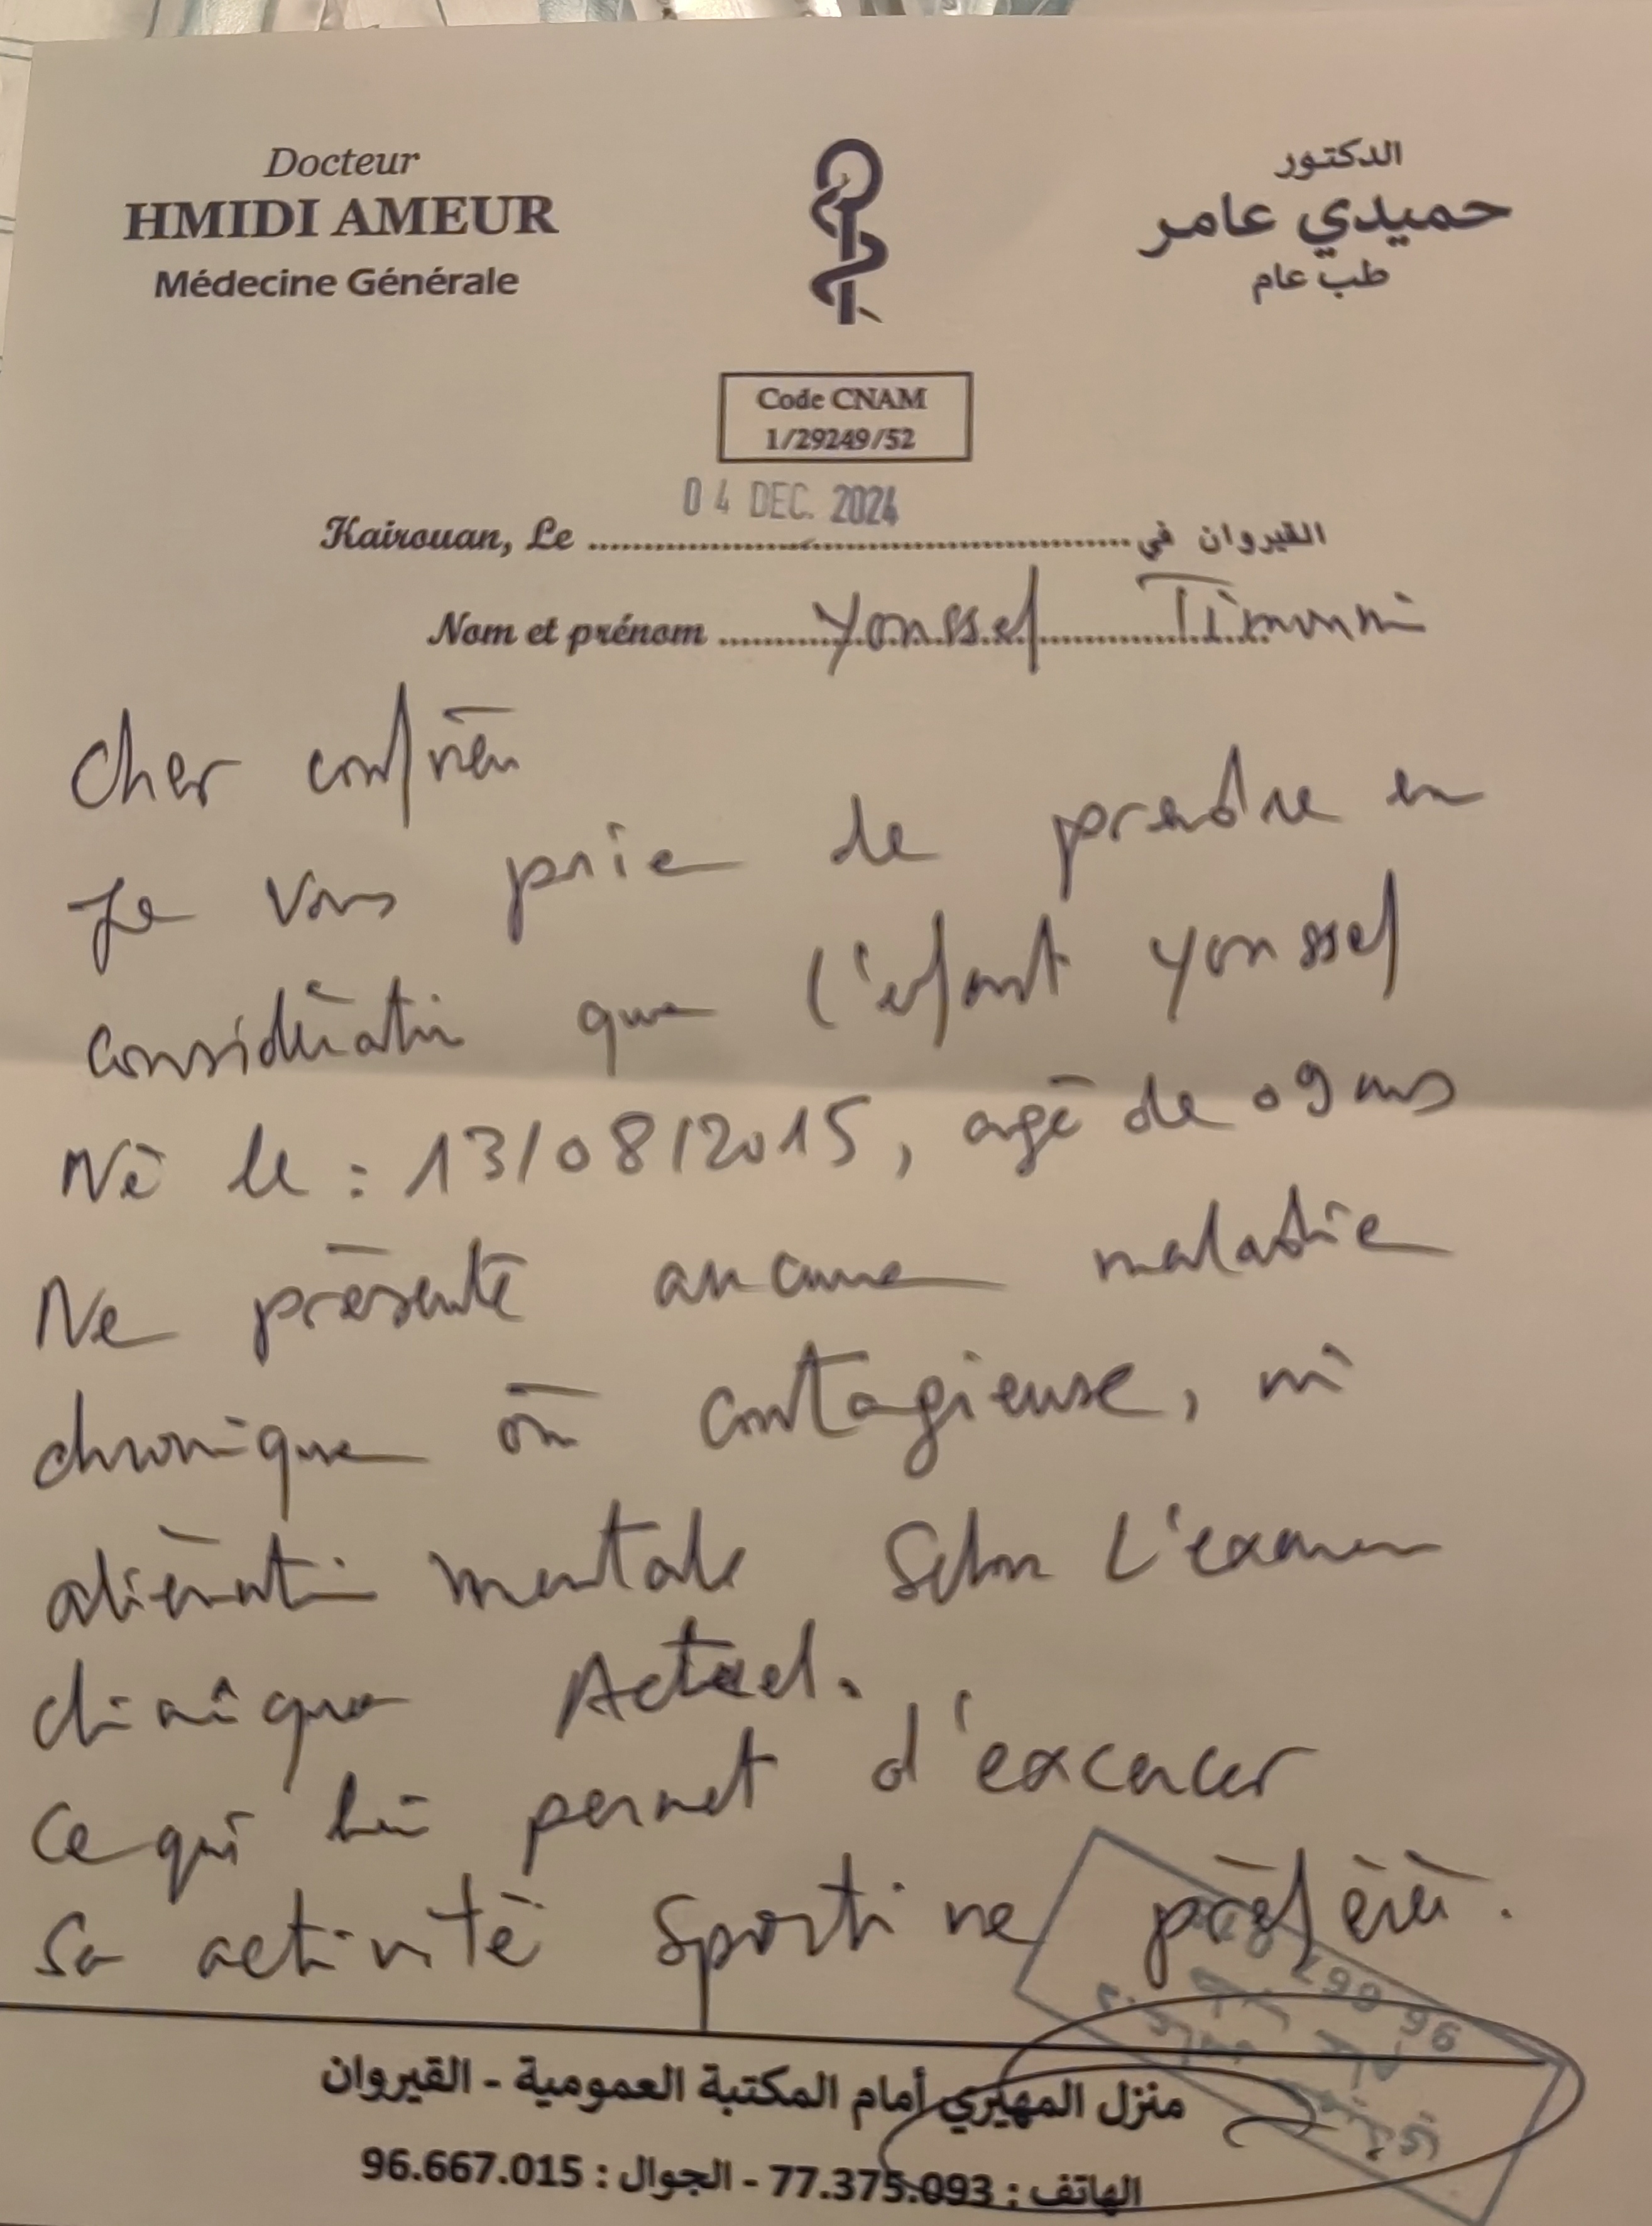 Docteur
HMIDI AMEUR
Médecine Générale
الدكتور
حميدي عامر
طب عام
Code CNAM
1/29249/52
04 DEC. 2024
Kairouan, Le ........ القيروان في
Nom et prénom ........ Youssef Timoumi
Cher confrère
Je vous prie de prendre en
considération que l'efant Youssef
Né le : 13/08/2015, agé de 09 ans
Ne présente aucune maladie
chronique ou contagieuse, ni
aliénation mentale selon l'examen
clinique Actuel.
ce qui lui permet d'excercer
sa activité sportive préférée.
منزل المهيري أمام المكتبة العمومية - القيروان
الهاتف : 77.375.093 - الجوال : 96.667.015